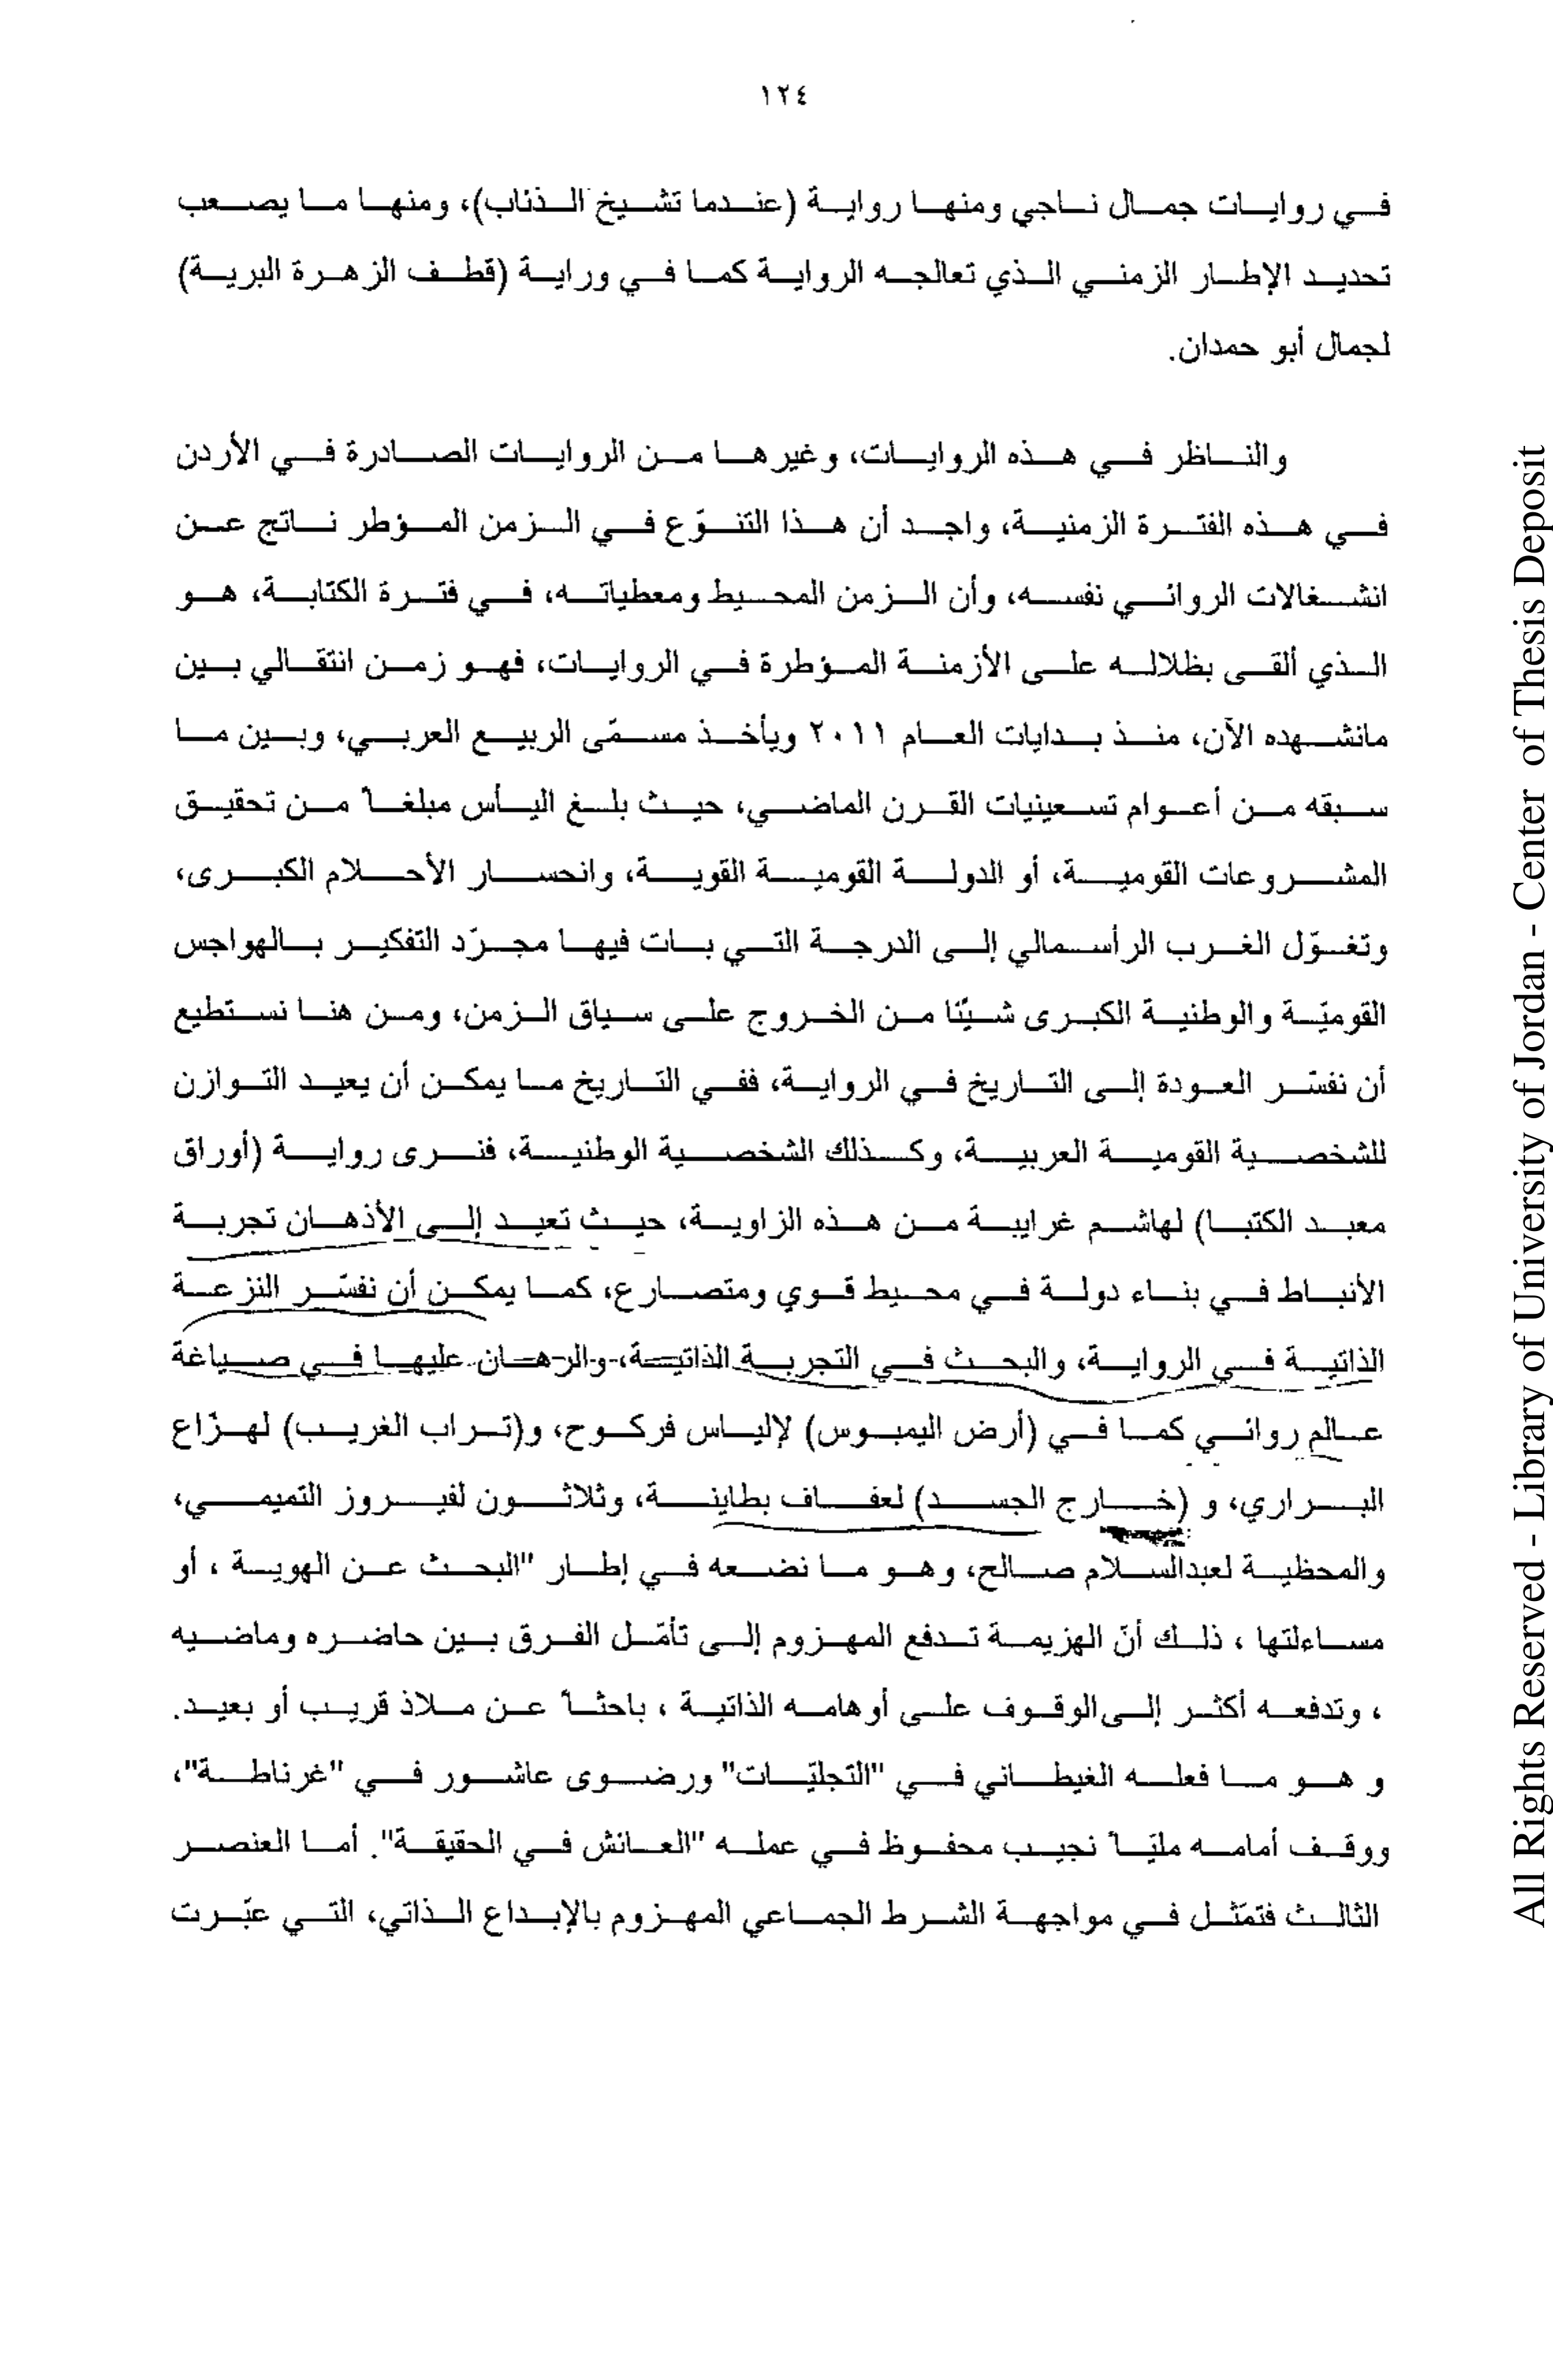 ١٢٤
في روايات جمال ناجي ومنها رواية (عندما تشيخ الذئاب)، ومنها ما يصعب
تحديد الإطار الزمني الذي تعالجه الرواية كما في وراية (قطف الزهرة البرية)
لجمال أبو حمدان.
والناظر في هذه الروايات، وغيرها من الروايات الصادرة في الأردن
في هذه الفترة الزمنية، واجد أن هذا التنوّع في الزمن المؤطر ناتج عن
انشغالات الروائي نفسه، وأن الزمن المحيط ومعطياته، في فترة الكتابة، هو
الذي ألقى بظلاله على الأزمنة المؤطرة في الروايات، فهو زمن انتقالي بين
مانشهده الآن، منذ بدايات العام ٢٠١١ ويأخذ مسمّى الربيع العربي، وبين ما
سبقه من أعوام تسعينيات القرن الماضي، حيث بلغ اليأس مبلغاً من تحقيق
المشروعات القومية، أو الدولة القومية القوية، وانحسار الأحلام الكبرى،
وتغوّل الغرب الرأسمالي إلى الدرجة التي بات فيها مجرّد التفكير بالهواجس
القوميّة والوطنية الكبرى شيئا من الخروج على سياق الزمن، ومن هنا نستطيع
أن نفسّر العودة إلى التاريخ في الرواية، ففي التاريخ ما يمكن أن يعيد التوازن
للشخصية القومية العربية، وكذلك الشخصية الوطنية، فنرى رواية (أوراق
معبد الكتبا) لهاشم غرايبة من هذه الزاوية، حيث تعيد إلى الأذهان تجربة
الأنباط في بناء دولة في محيط قوي ومتصارع، كما يمكن أن نفسّر النزعة
الذاتية في الرواية، والبحث في التجربة الذاتية، والرهان عليها في صياغة
عالم روائي كما في (أرض اليمبوس) لإلياس فركوح، و(تراب الغريب) لهزّاع
البراري، و (خارج الجسد) لعفاف بطاينة، وثلاثون لفيروز التميمي،
والمحظية لعبدالسلام صالح، وهو ما نضعه في إطار "البحث عن الهوية ، أو
مساءلتها ، ذلك أنّ الهزيمة تدفع المهزوم إلى تأمّل الفرق بين حاضره وماضيه
، وتدفعه أكثر إلى الوقوف على أوهامه الذاتية ، باحثاً عن ملاذ قريب أو بعيد.
و هو ما فعله الغيطاني في "التجليّات" ورضوى عاشور في "غرناطة"،
ووقف أمامه مليّاً نجيب محفوظ في عمله "العائش في الحقيقة". أما العنصر
الثالث فتمّثل في مواجهة الشرط الجماعي المهزوم بالإبداع الذاتي، التي عبّرت
All Rights Reserved - Library of University of Jordan - Center of Thesis Deposit